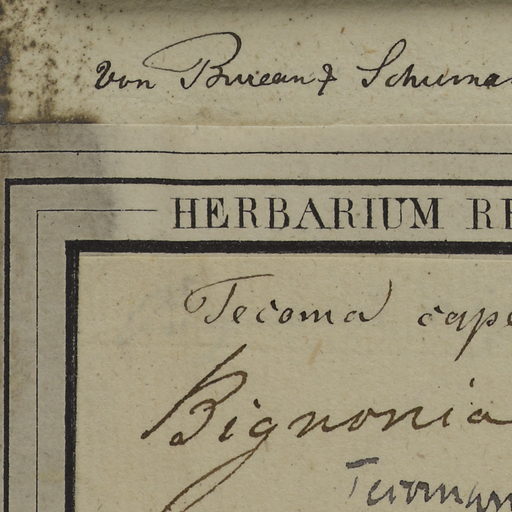 von Bureau & Schuma
HERBARIUM RE
Tecoma cape
Bignonia